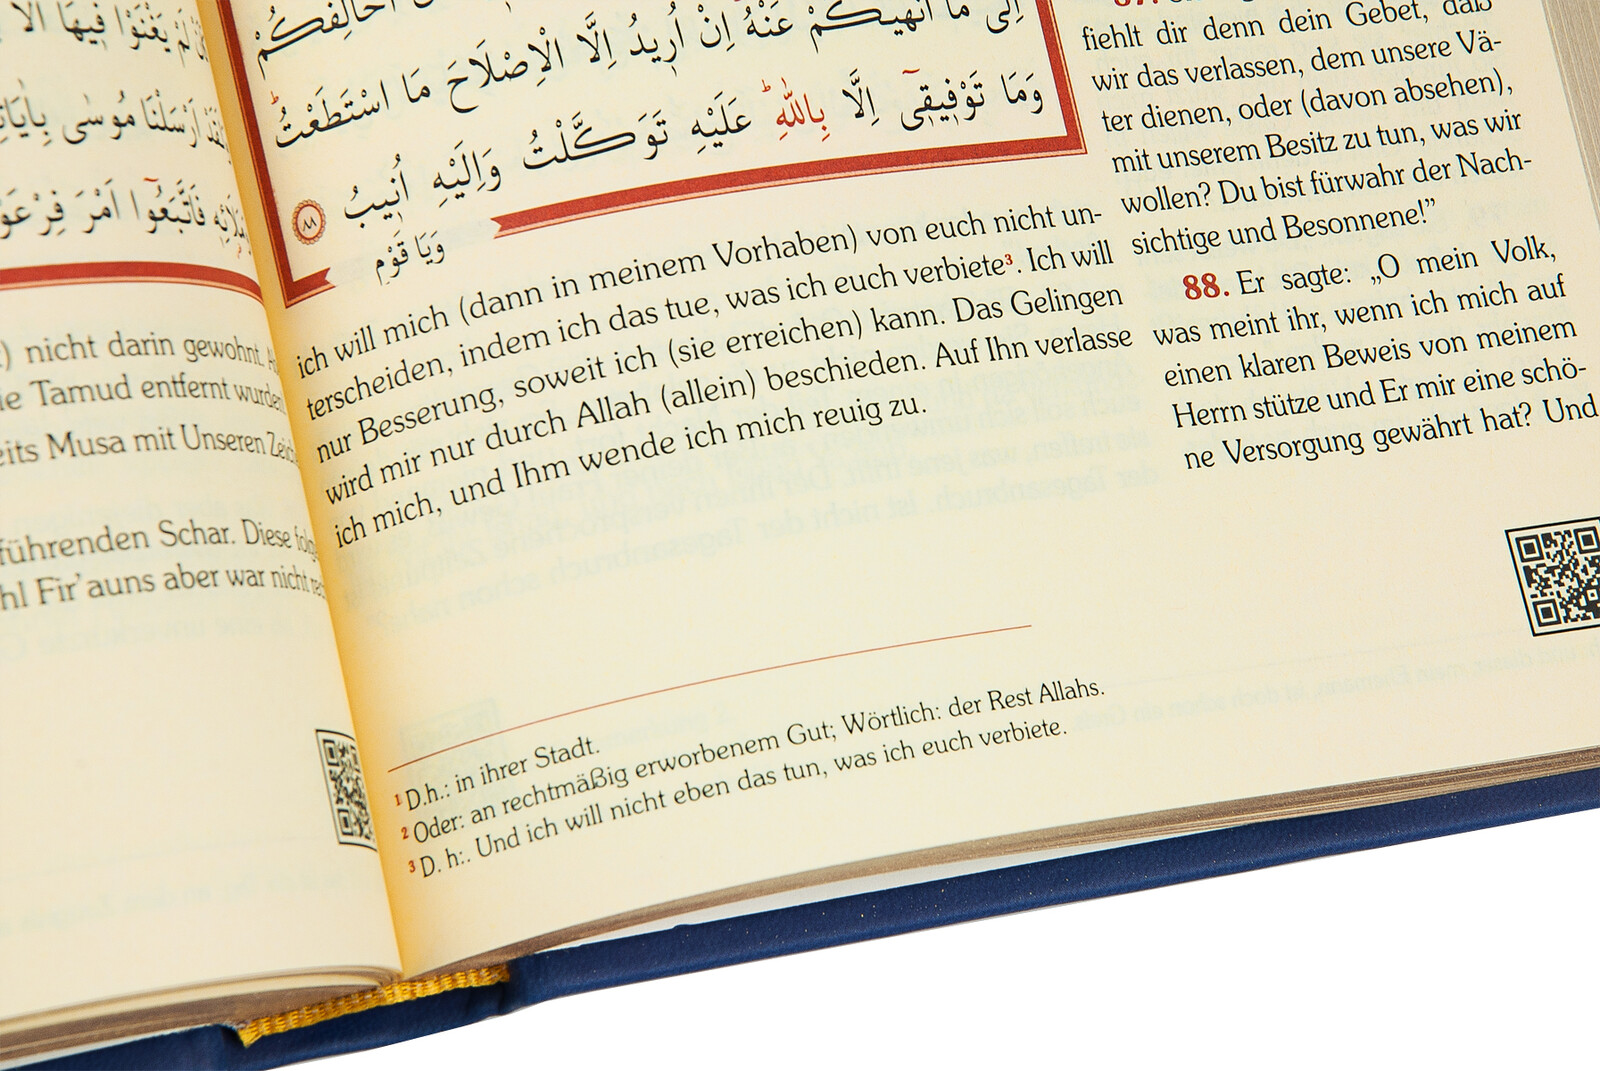 لَمْ يَغْنَوْا فِيهَا
اَرْسَلْنَا مُوسٰى
فَاتَّبَعُٓوا اَمْرَ فِرْعَوْ
nicht darin gewohnt.
Tamud entfernt wurden
eits Musa mit Unseren
führenden Schar. Diese
hl Fir'auns aber war nicht
اِلٰى مَٓا اَنْهٰيكُمْ عَنْهُ اِنْ اُر۪يدُ اِلَّا الْاِصْلَاحَ مَا اسْتَطَعْتُ
وَمَا تَوْف۪يق۪ٓي اِلَّا بِاللّٰهِ عَلَيْهِ تَوَكَّلْتُ وَاِلَيْهِ اُن۪يبُ ٨٨
وَيَا قَوْمِ
fiehlt dir denn dein Gebet, daß
wir das verlassen, dem unsere Vä-
ter dienen, oder (davon absehen),
mit unserem Besitz zu tun, was wir
wollen? Du bist fürwahr der Nach-
sichtige und Besonnene!”
88. Er sagte: „O mein Volk,
was meint ihr, wenn ich mich auf
einen klaren Beweis von meinem
Herrn stütze und Er mir eine schö-
ne Versorgung gewährt hat? Und
ich will mich (dann in meinem Vorhaben) von euch nicht un-
terscheiden, indem ich das tue, was ich euch verbiete³. Ich will
nur Besserung, soweit ich (sie erreichen) kann. Das Gelingen
wird mir nur durch Allah (allein) beschieden. Auf Ihn verlasse
ich mich, und Ihm wende ich mich reuig zu.
¹ D.h.: in ihrer Stadt.
² Oder: an rechtmäßig erworbenem Gut; Wörtlich: der Rest Allahs.
³ D. h:. Und ich will nicht eben das tun, was ich euch verbiete.